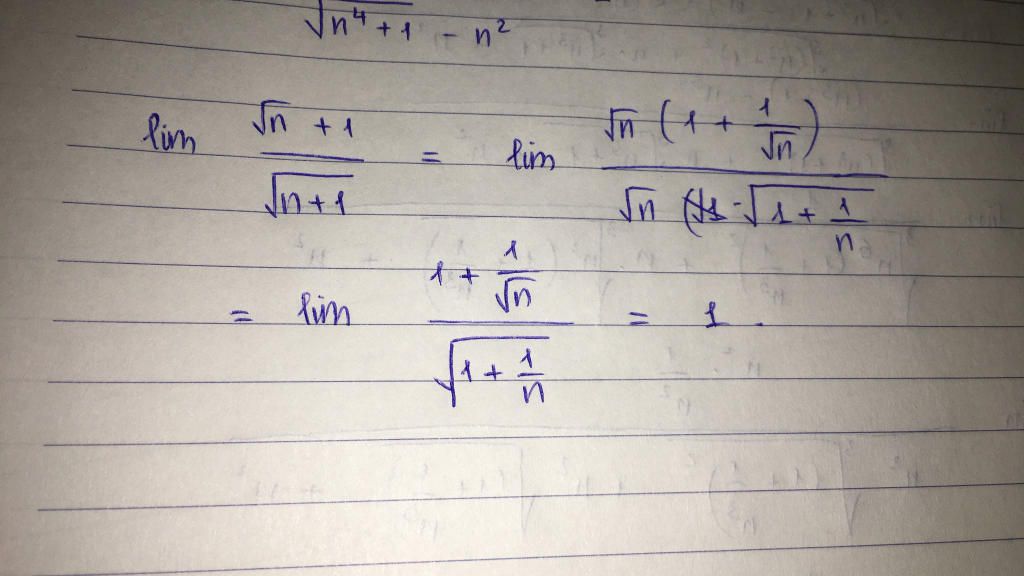 √(n⁴ + 1) - n²
lim (√n + 1)/(√(n+1)) = lim (√n (1 + 1/√n))/(√n · √(1 + 1/n))
= lim (1 + 1/√n)/(√(1 + 1/n)) = 1.